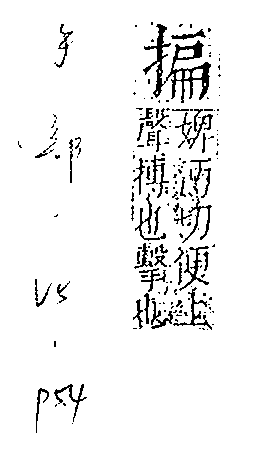 揙
婢沔切便上
聲摶也擊也
手部.V5.P54